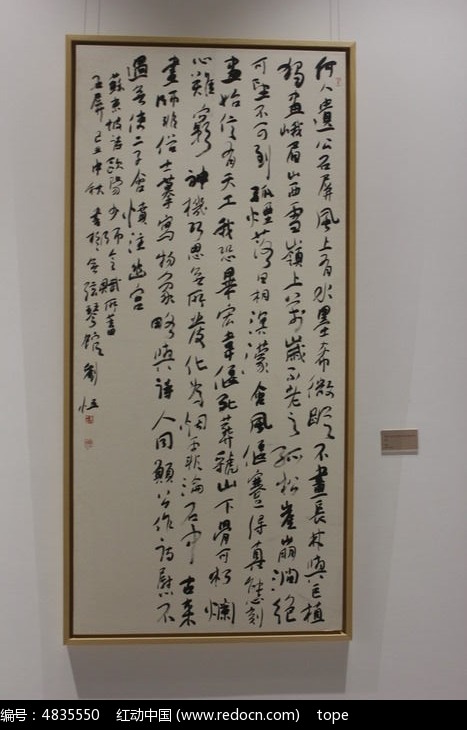 何人遺公石屏風上有水墨希微蹤不畫長林與巨植
獨畫峨眉山西雪嶺上万歲不老之孤松崖崩澗絕
可望不可到孤煙落日相溟濛含風偃蹇得真態刻
畫始信有天工我恐畢宏韋偃死葬虢山下骨可朽爛
心難窮神機巧思無所發化為烟霏淪石中古来
畫師非俗士摹寫物象略與詩人同願公作詩慰不
遇無使二子含憤泣幽宮
蘇東坡詩歐陽少師令賦所蓄
石屏己丑中秋書於無弦琴館劉恒
编号：4835550 红动中国 (www.redocn.com) tope